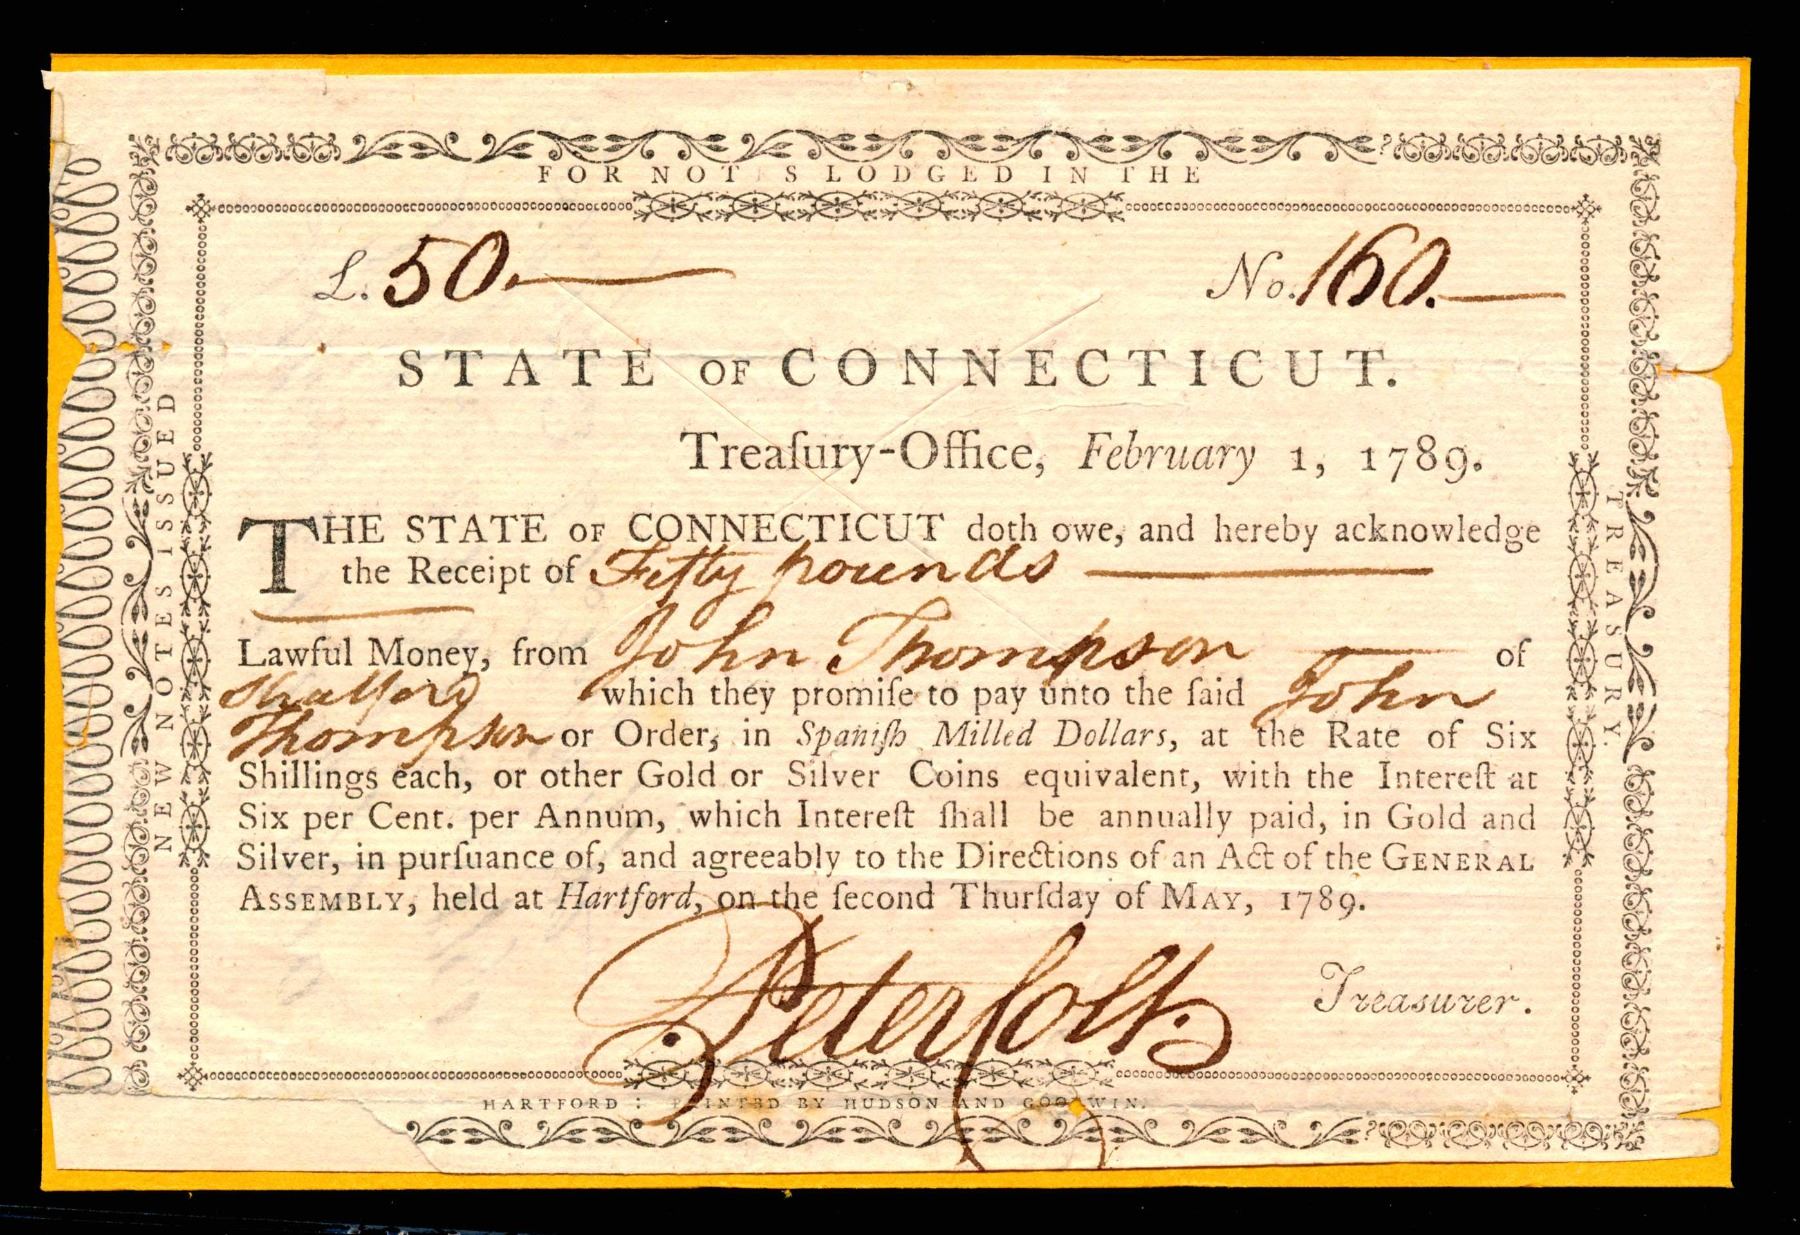 NEW NOTES ISSUED
FOR NOTES LODGED IN THE
TREASURY.
£. 50.
No. 160.
STATE OF CONNECTICUT.
Treaſury-Office, February 1, 1789.
THE STATE OF CONNECTICUT doth owe, and hereby acknowledge
the Receipt of Fifty pounds
Lawful Money, from John Thompson of
Stratford which they promiſe to pay unto the ſaid John
Thompson or Order, in Spaniſh Milled Dollars, at the Rate of Six
Shillings each, or other Gold or Silver Coins equivalent, with the Intereſt at
Six per Cent. per Annum, which Intereſt ſhall be annually paid, in Gold and
Silver, in purſuance of, and agreeably to the Directions of an Act of the GENERAL
ASSEMBLY, held at Hartford, on the ſecond Thurſday of MAY, 1789.
Peter Colt. Treasurer.
HARTFORD: PRINTED BY HUDSON AND GOODWIN.